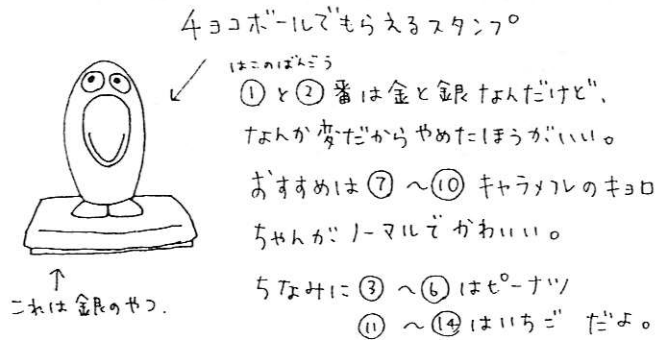 チョコボールでもらえるスタンプ
はこのばんごう
①と②番は金と銀なんだけど、
なんか変だからやめたほうがいい。
おすすめは⑦〜⑩キャラメルのキョロ
ちゃんがノーマルでかわいい。
ちなみに③〜⑥はピーナツ
⑪〜⑭はいちご だよ。
↑
これは銀のやつ.